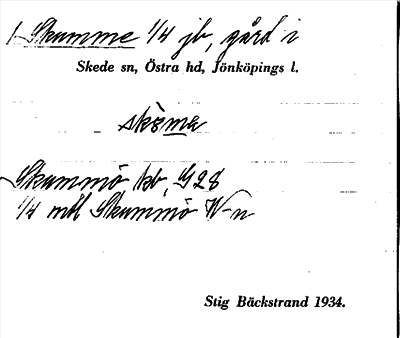 1 Skumme 1/4 jb, gård i
Skede sn, Östra hd, Jönköpings l.
Skummö kb, G28
1/4 mtl Skummö W-n
Stig Bäckstrand 1934.